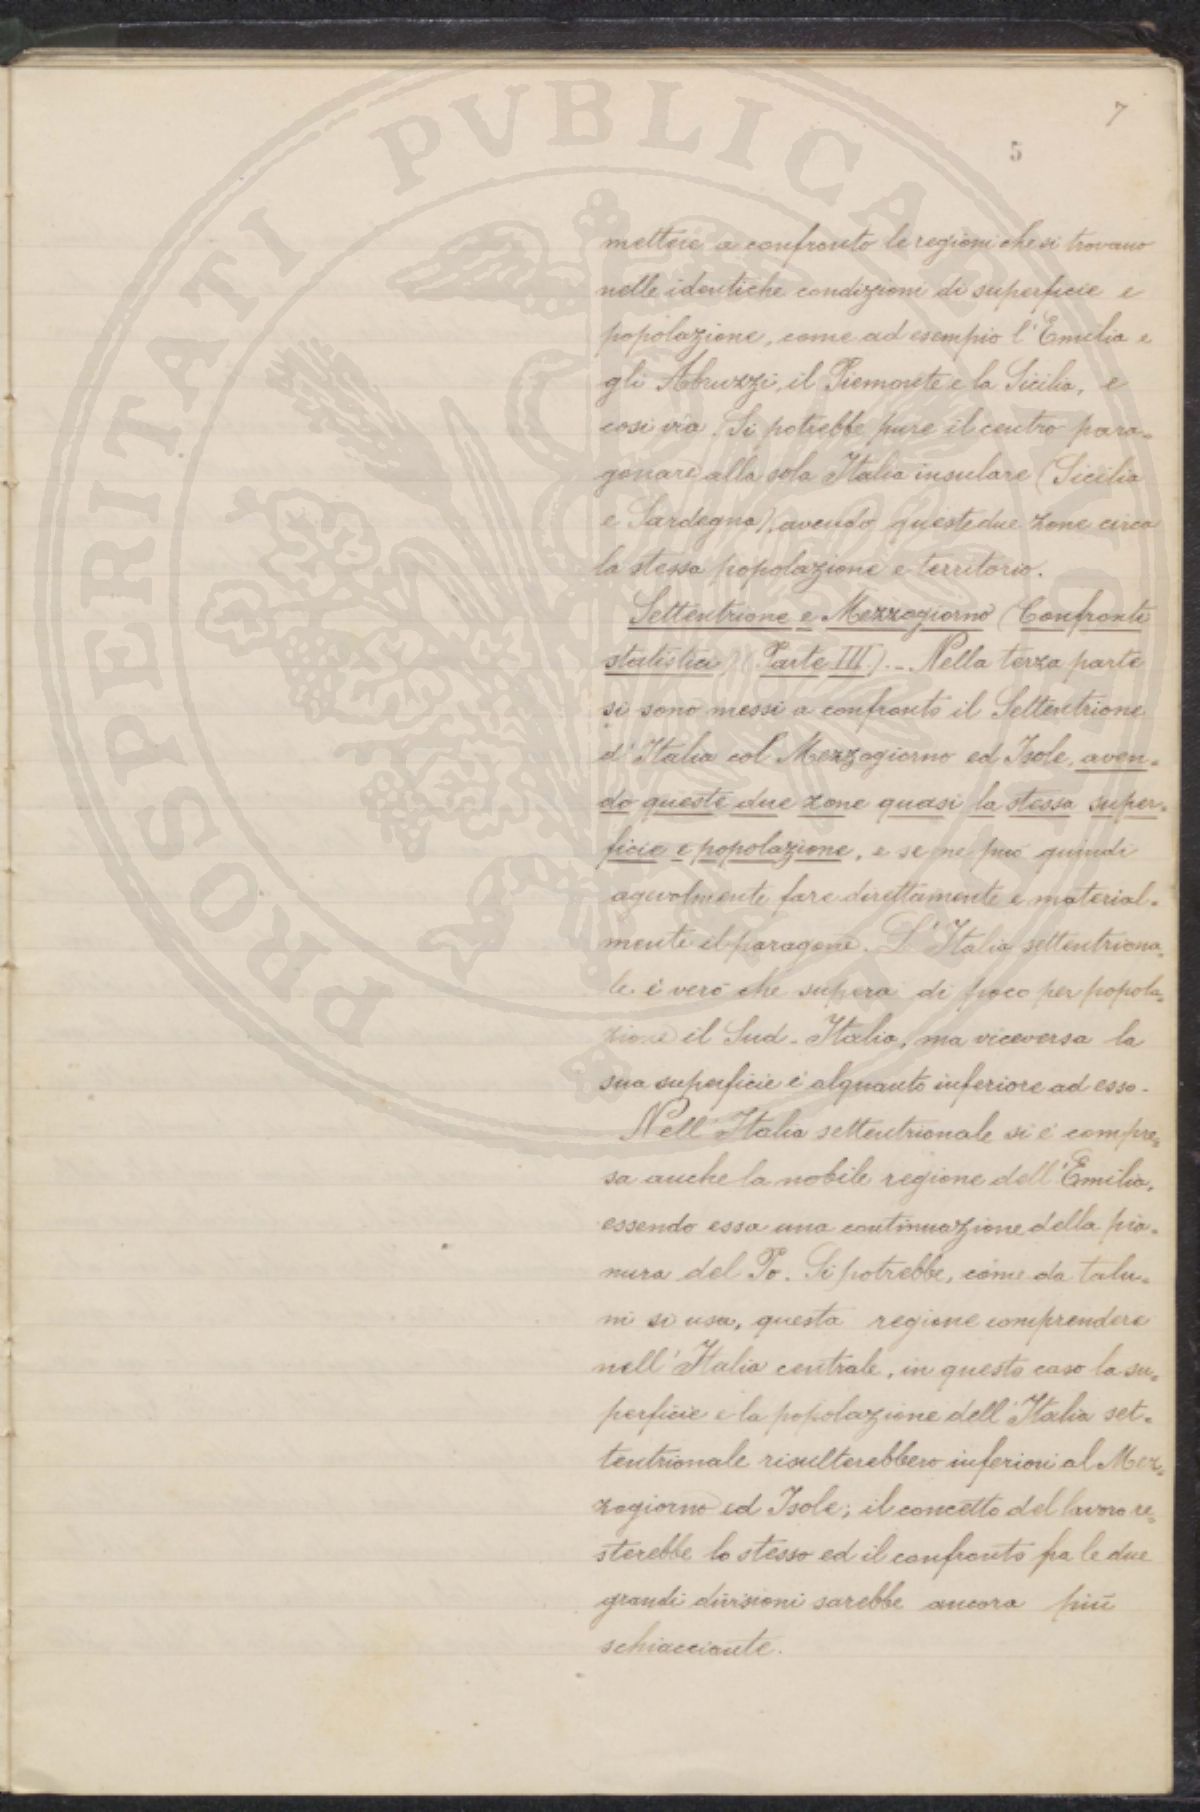 7
5
mettere a confronto le regioni che si trovano
nelle identiche condizioni di superficie e
popolazione, come ad esempio l'Emilia e
gli Abruzzi, il Piemonte e la Sicilia, e
così via. Si potrebbe pure il centro para-
gonare alla sola Italia insulare (Sicilia
e Sardegna), avendo queste due zone circa
la stessa popolazione e territorio.
Settentrione e Mezzogiorno (Confronti
statistici) (Parte III.). - Nella terza parte
si sono messi a confronto il Settentrione
d'Italia col Mezzogiorno ed Isole, aven-
do queste due zone quasi la stessa super-
ficie e popolazione, e se ne può quindi
agevolmente fare direttamente e material-
mente il paragone. L'Italia settentriona-
le è vero che supera di poco per popola-
zione il Sud-Italia, ma viceversa la
sua superficie è alquanto inferiore ad esso.
Nell'Italia settentrionale si è compre-
sa anche la nobile regione dell'Emilia,
essendo essa una continuazione della pia-
nura del Po. Si potrebbe, come da talu-
ni si usa, questa regione comprendere
nell'Italia centrale, in questo caso la su-
perficie e la popolazione dell'Italia set-
tentrionale risulterebbero inferiori al Mez-
zogiorno ed Isole; il concetto del lavoro re-
sterebbe lo stesso ed il confronto fra le due
grandi divisioni sarebbe ancora più
schiacciante.
PROSPERITATI PVBLICAE